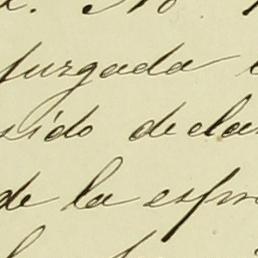 No
juzgada
sido decla
de la espr